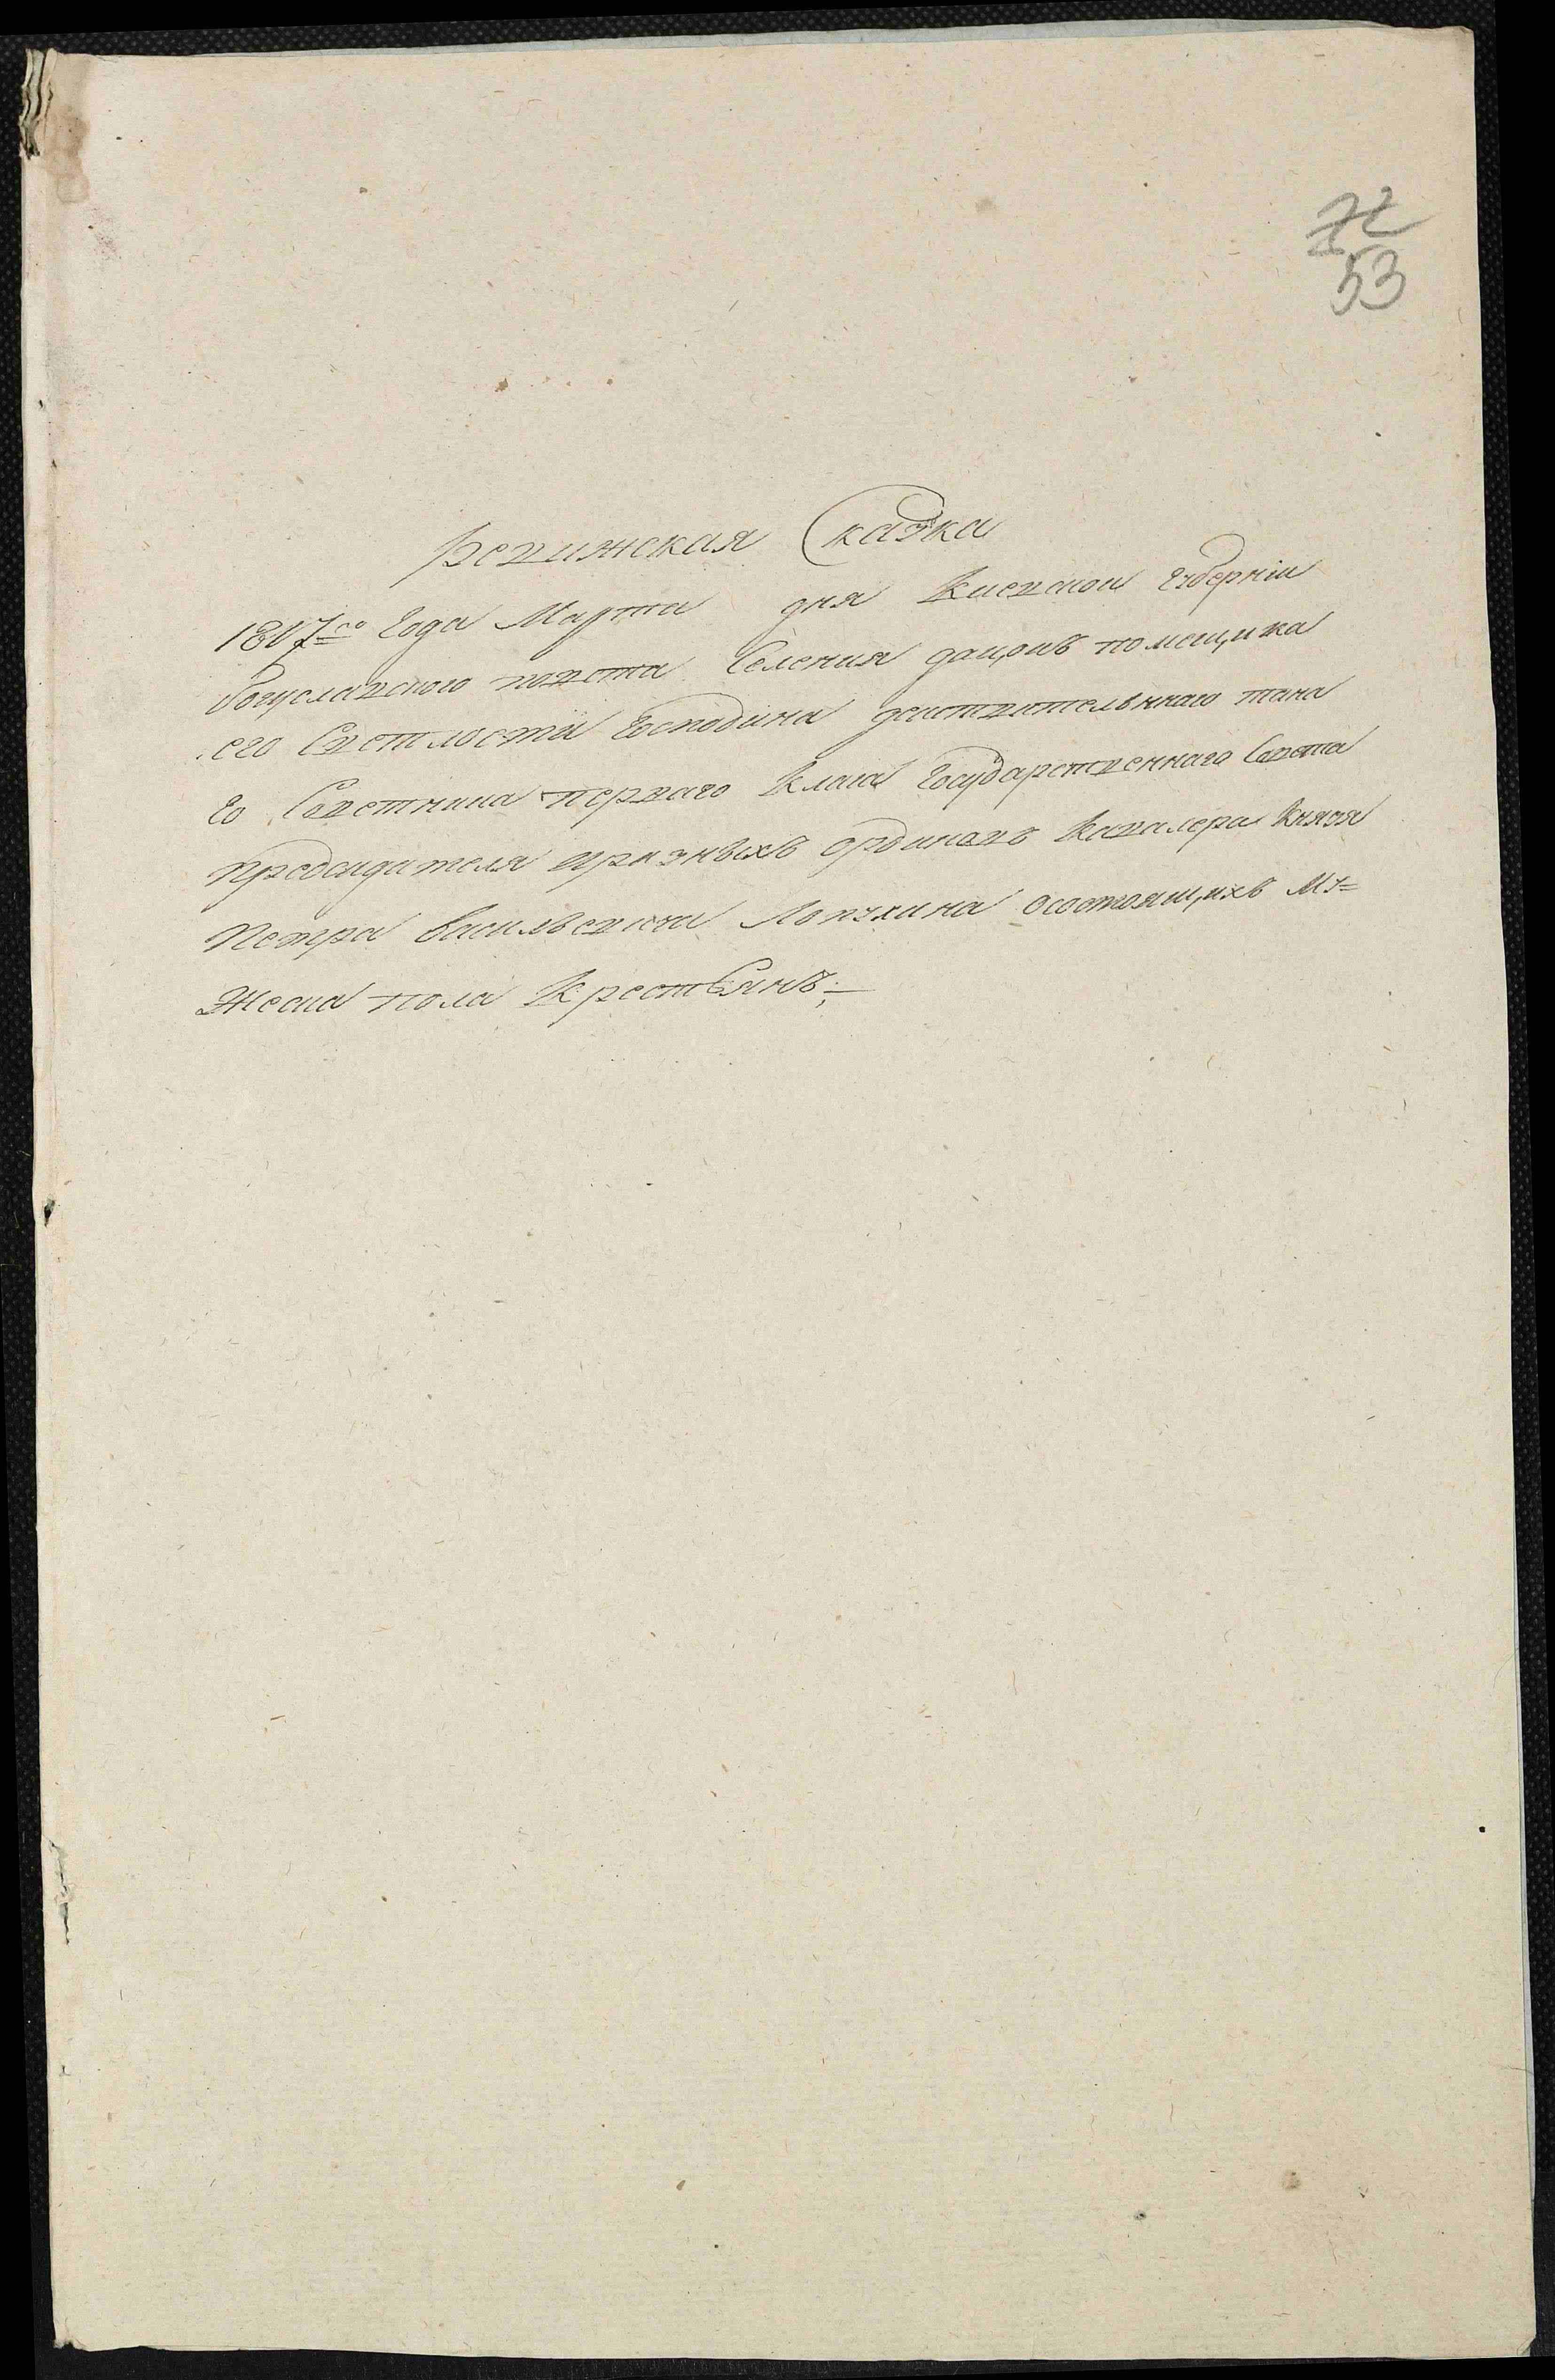 53
Ревижская Сказка
1817го года Марта дня Киевской Губерніи
Богуславского повета Селения дацовъ помещика
его Светлости Господина действительннаго тана
го Советника перваго Класа Государственнаго Совета
председателя иразныхъ ординовъ Кавалера Князя
Петра Васильевича Лопухина осостоящихъ Му=
Жеска пола Крестьянъ;—